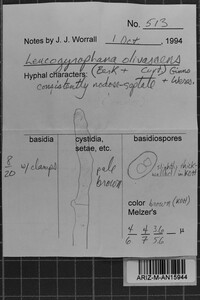 No. 513
Notes by J. J. Worrall 1 Dec , 1994
Leucogyrophana olivascens
Hyphal characters: (Berk + Curt) Ginns
consistently nodose-septate + Weres.
basidia
cystidia,
setae, etc.
basidiospores
8
20
w/ clamps
pale
brown
slightly thick-
walled in KOH
color brown (KOH)
Melzer's
4 4 3.6
6 7 5.6 µ
ARIZ-M-AN15944